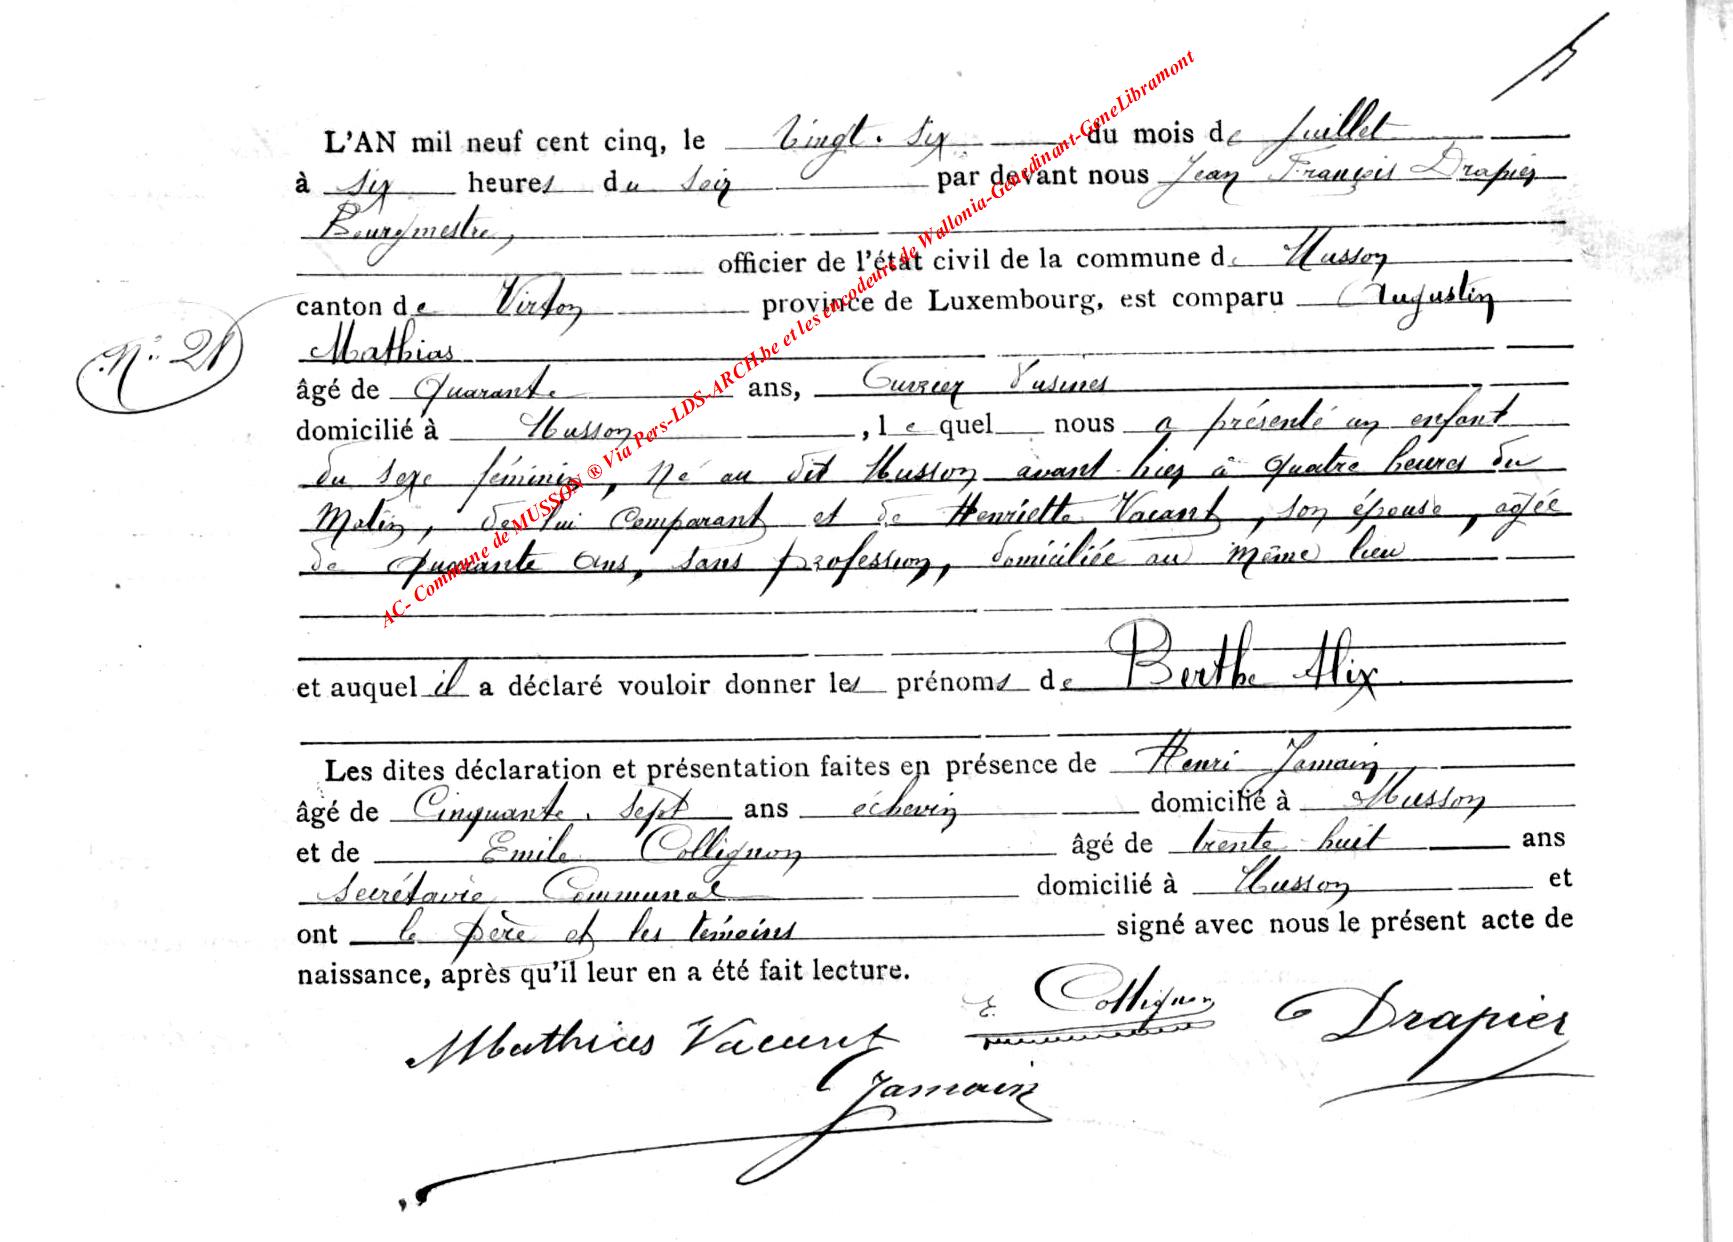 L'AN mil neuf cent cinq, le vingt-six du mois de juillet
à six heures du soir par devant nous Jean François Drapier
Bourgmestre,
officier de l'état civil de la commune de Musson
canton de Virton province de Luxembourg, est comparu Augustin
N° 21
Mathias
âgé de quarante ans, ouvrier d'usines
domicilié à Musson, lequel nous a présenté un enfant
du sexe féminin, né au dit Musson avant-hier à quatre heures du
matin, de lui comparant et de Henriette Vacant, son épouse, âgée
de quarante ans, sans profession, domiciliée au même lieu
et auquel il a déclaré vouloir donner les prénoms de Berthe Alix
Les dites déclaration et présentation faites en présence de Henri Jamain,
âgé de cinquante-sept ans échevin domicilié à Musson
et de Emile Collignon âgé de trente-huit ans
secrétaire communal domicilié à Musson et
ont le père et les témoins signé avec nous le présent acte de
naissance, après qu'il leur en a été fait lecture.
E. Collignon Drapier
Mathias Vacant
Jamain
AC- Commune de MUSSON ® Via Pers-LDS-ARCH.be et les encodeurs de Wallonia-Genedinant-GeneLibramont